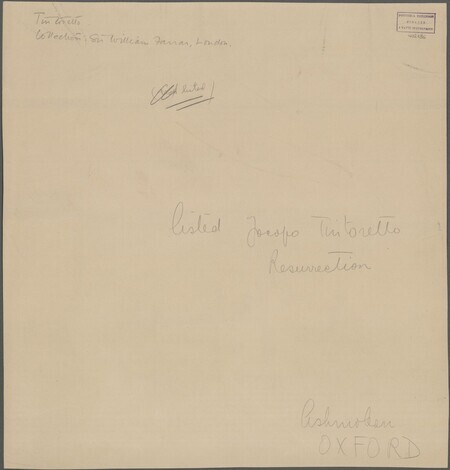 Tintoretto
Collection: Sir William Farrar, London.
listed Jacopo Tintoretto
Resurrection
Ashmolean
OXFORD